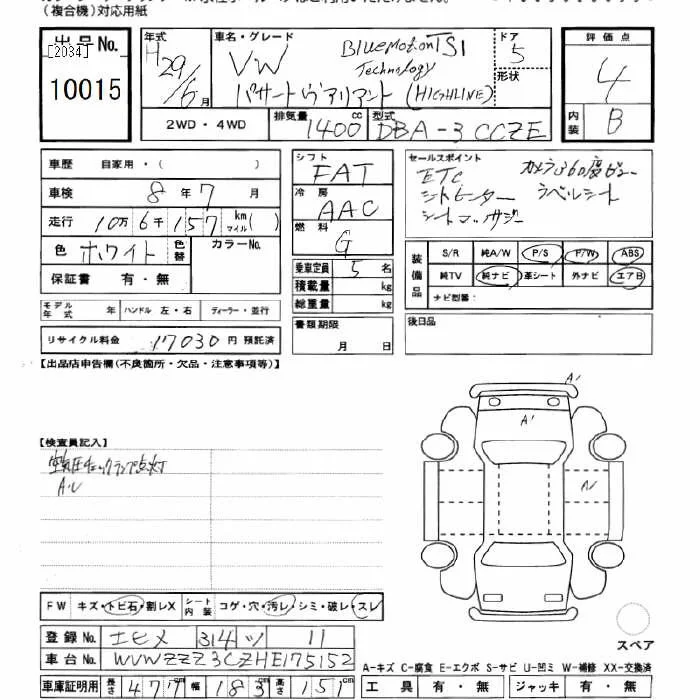 (複合機)対応用紙
出品No.
[2034]
10015
年式 H29/6月
車名・グレード VW BlueMotion TSI Technology
パサートヴァリアント(HIGHLINE)
ドア 5
形状
評価点 4
内装 B
2WD・4WD
排気量 1400cc
型式 DBA-3CCZE
車歴 自家用・( )
車検 8年7月
走行 10万6千157 km マイル( )
色 ホワイト 色替 カラーNo.
保証書 有・無
モデル年式 年 ハンドル 左・右 ディーラー・並行
リサイクル料金 17030円 預託済
シフト FAT
冷房 AAC
燃料 G
乗車定員 5名
積載量 kg
総重量 kg
書類期限 月 日
セールスポイント
ETC
シートヒーター ラベルシート
シートマッサジー
装備品
S/R 純A/W P/S P/W ABS
純TV 純ナビ 革シート 外ナビ エアB
ナビ型番:
後日品
【出品店申告欄(不良箇所・欠品・注意事項等)】
【検査員記入】
空気圧チェックランプ点灯
A・U
A1
A1
A1
FW キズ・トビ石・割レX シート内装 コゲ・穴・汚レ・シミ・破レ・スレ
登録No. エヒメ 314 ツ 11
車台No. WVWZZZ3CZHE175152
車庫証明用 長さ 477 幅 183 高さ 151 cm
スペア
A-キズ C-腐食 E-エクボ S-サビ U-凹ミ W-補修 XX-交換済
工具 有・無 ジャッキ 有・無